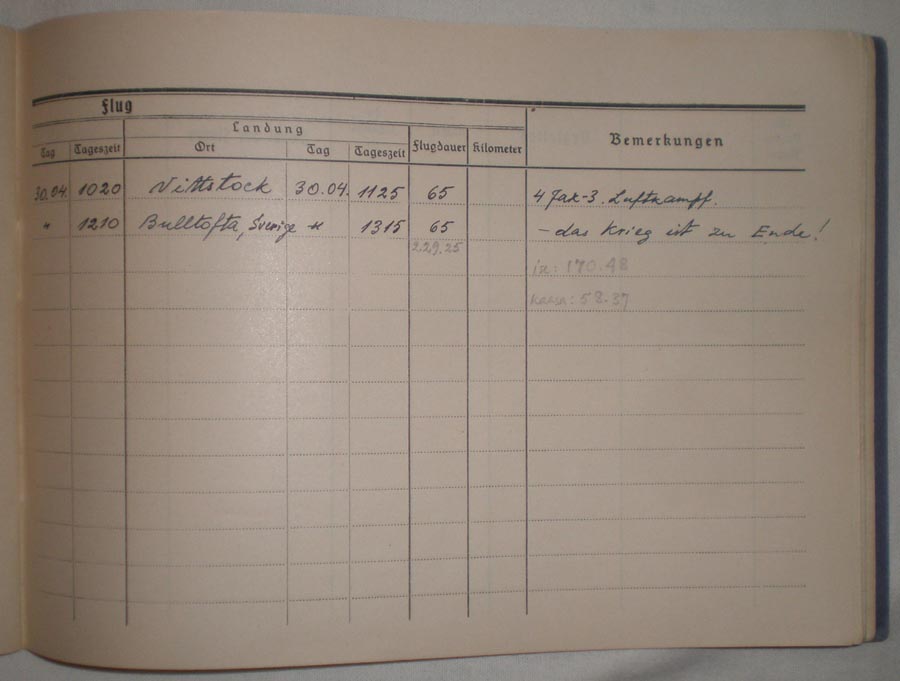 Flug
Landung
Tag Tageszeit Ort Tag Tageszeit Flugdauer Kilometer Bemerkungen
30.04. 1020 Vittstock 30.04. 1125 65 4 Jak-3. Luftkampf.
" 1210 Bulltofta, Sverige " 1315 65 - das Krieg ist zu Ende!
229.25
170.48
58.37